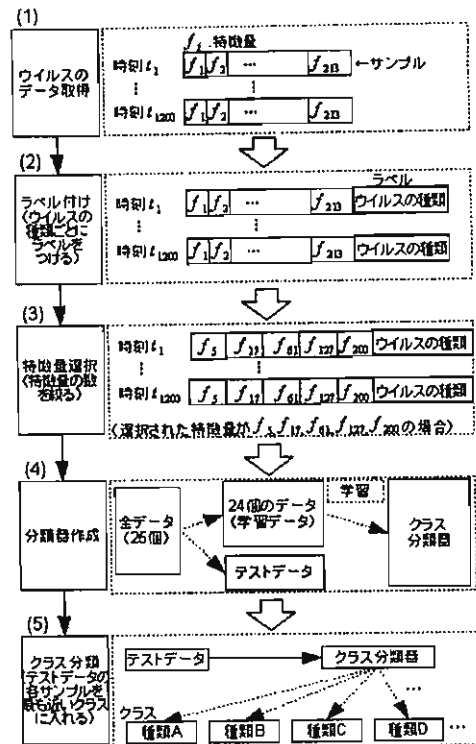 (1)
ウイルスの
データ取得
f_i 特徴量
時刻 t_1 f_1 f_2 … f_213 ←サンプル
⋮ ⋮
時刻 t_1200 f_1 f_2 … f_213
(2)
ラベル付け
(ウイルスの
種類ごとに
ラベルを
つける)
ラベル
時刻 t_1 f_1 f_2 … f_213 ウイルスの種類
⋮ ⋮
時刻 t_1200 f_1 f_2 … f_213 ウイルスの種類
(3)
特徴量選択
(特徴量の数
を絞る)
時刻 t_1 f_5 f_17 f_61 f_127 f_200 ウイルスの種類
⋮ ⋮
時刻 t_1200 f_5 f_17 f_61 f_127 f_200 ウイルスの種類
(選択された特徴量が f_5, f_17, f_61, f_127, f_200 の場合)
(4)
分類器作成
全データ
(25個)
24個のデータ
(学習データ)
学習
クラス
分類器
テストデータ
(5)
クラス分類
(テストデータの
各サンプルを
最も近いクラス
に入れる)
テストデータ
クラス分類器
…
クラス
種類A 種類B 種類C 種類D …